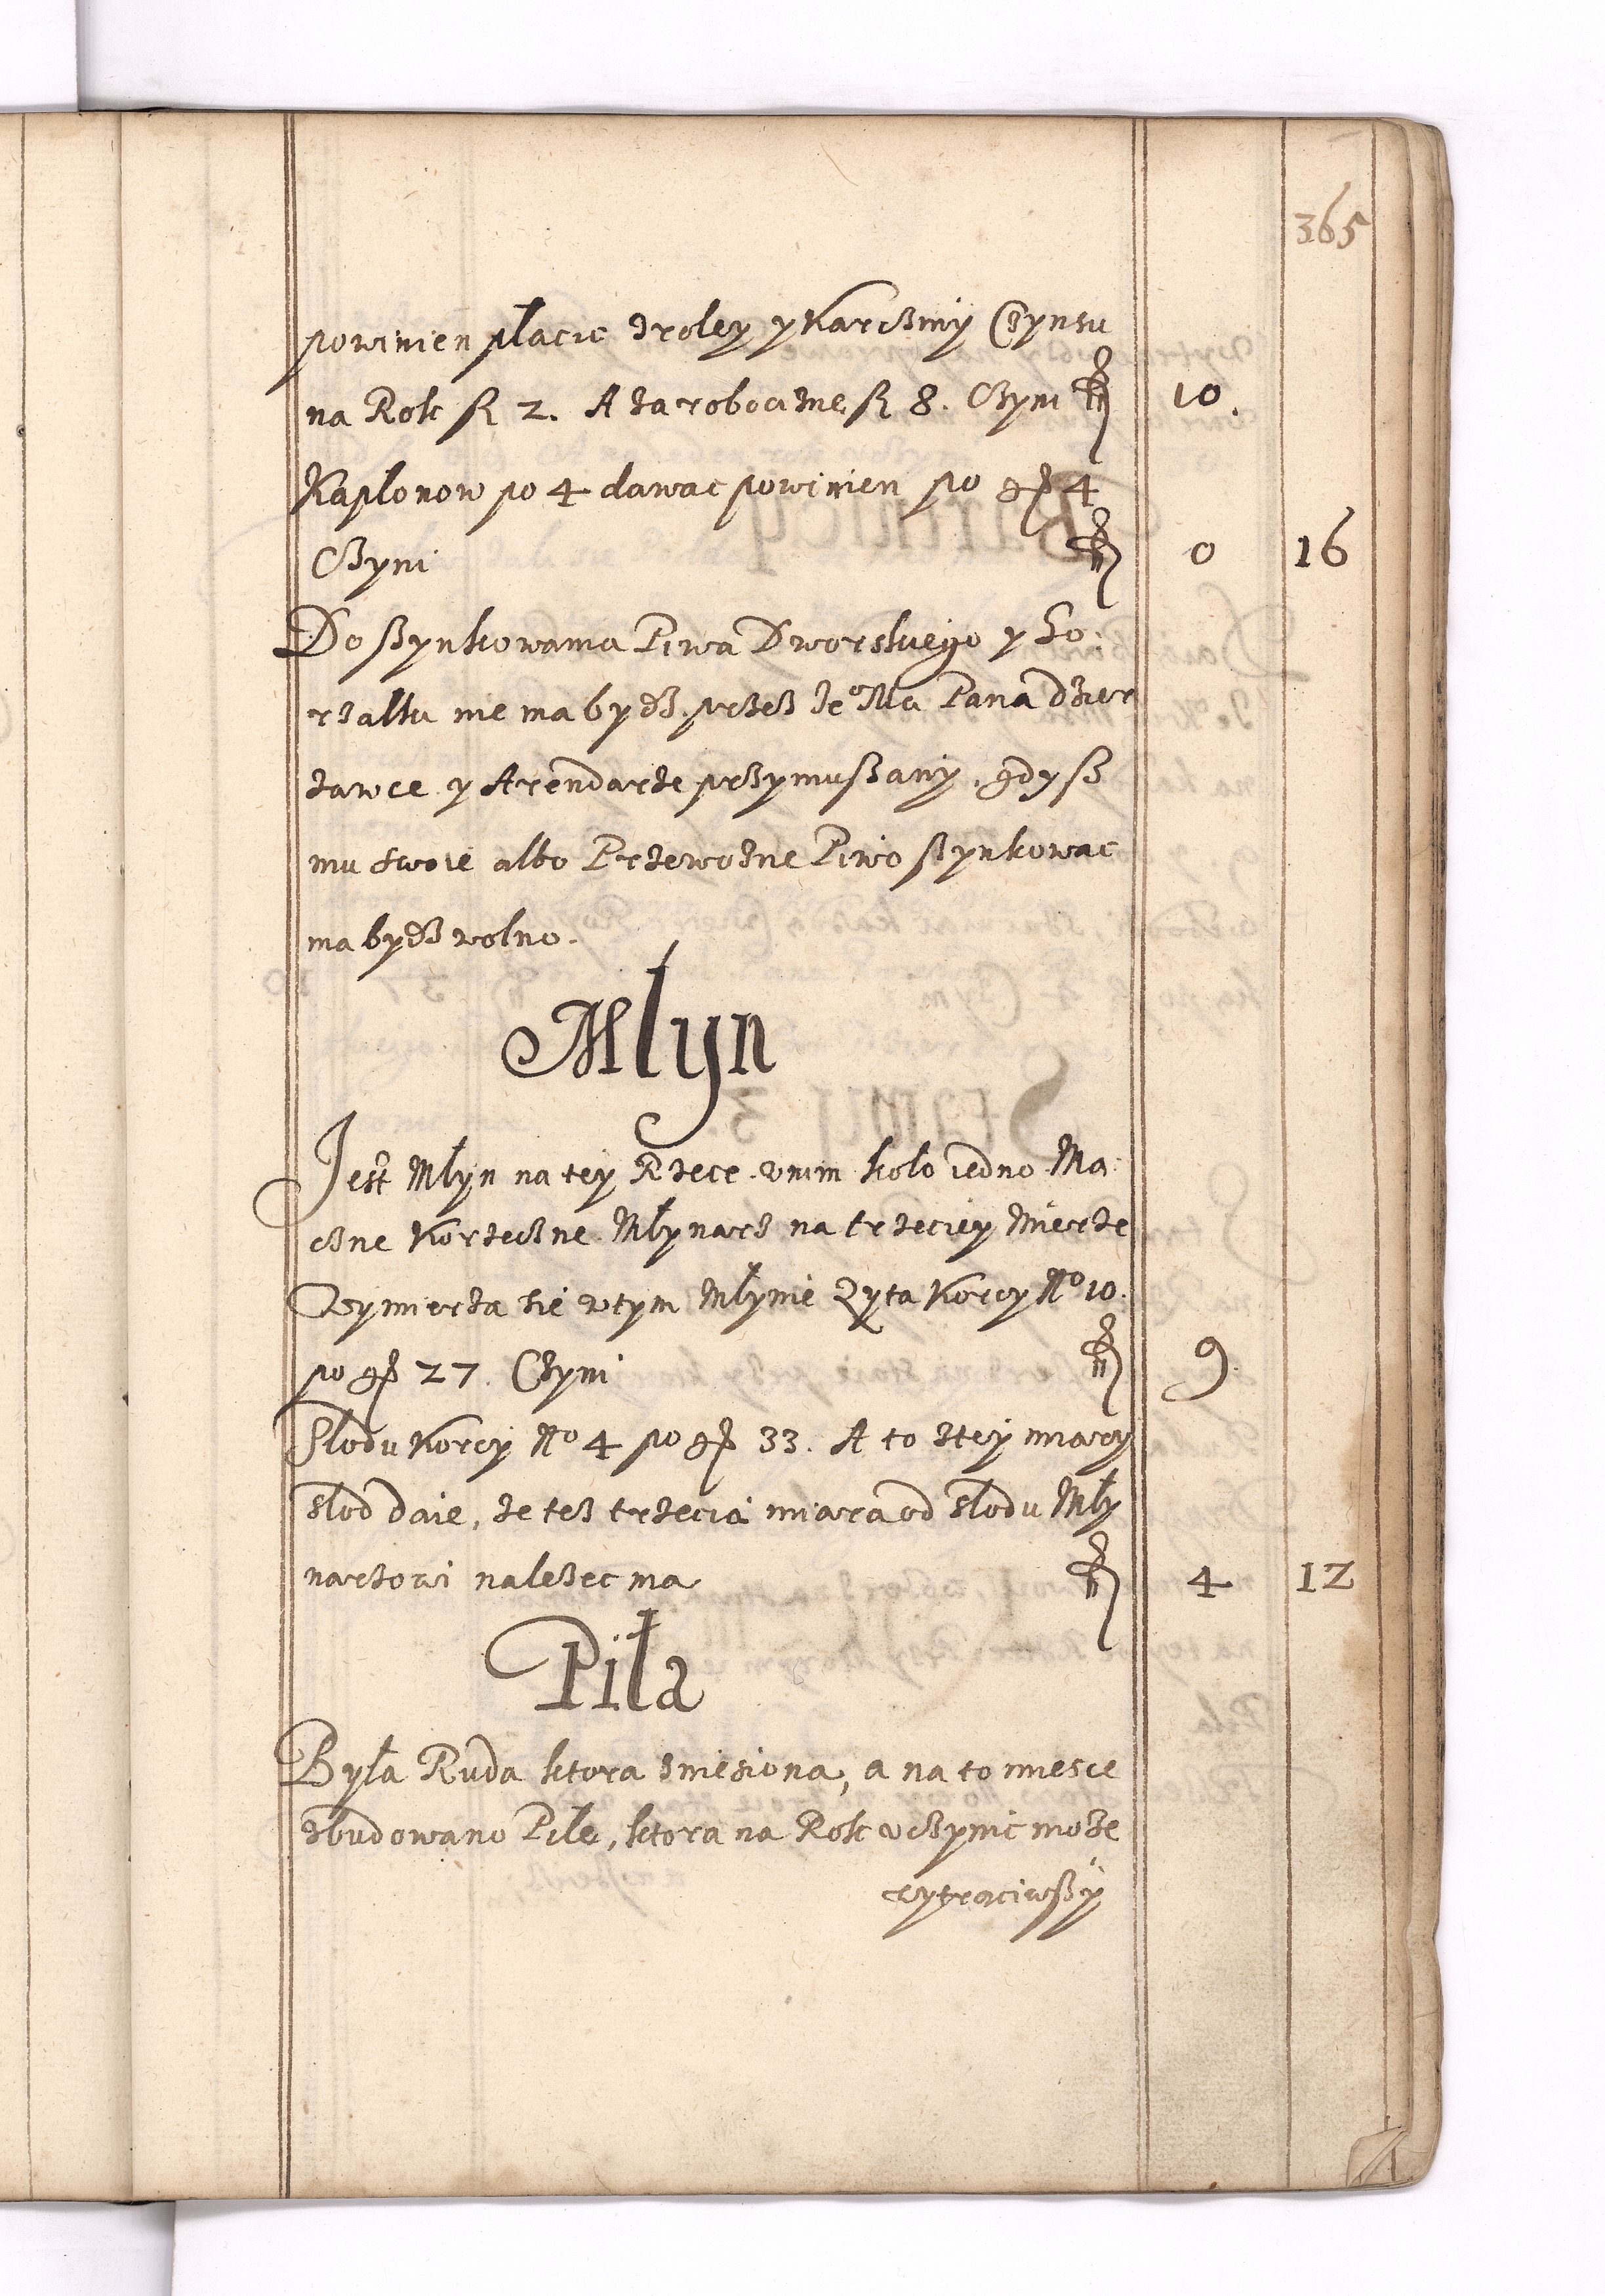 365
powinien płacic zroley y Karczmy Czynszu
na Rok fl 2. A za robocizne fl 8. Czyni fl 10.
Kapłonow po 4 dawac powinien po gr 4
Czyni fl 0 16
Do szynkowania Piwa Dworskiego y Go-
rzałki nie ma bydz przez Je° Mci Pana Dzier
zawce y Arendarze przymuszany, gdysz
mu swoie albo Przewozne Piwo szynkowac
ma bydz wolno.
Młyn
Jest Młyn na tey Rzece wnim koło iedno Ma-
czne Korzeczne Młynarz na trzeciey Mierze
Wymierza sie wtym Młynie Zyta Korcy No 10.
po gr 27. Czyni fl 9.
Słodu Korcy No 4 po gr 33. A to ztey miary
słod daie, ze tez trzecia miara od słodu Mły
narzowi nalezec ma fl 4 12
Piła
Była Ruda ktora zniesiona, a na to miesce
zbudowano Piłe, ktora na Rok uczynic moze
wytraciwszy